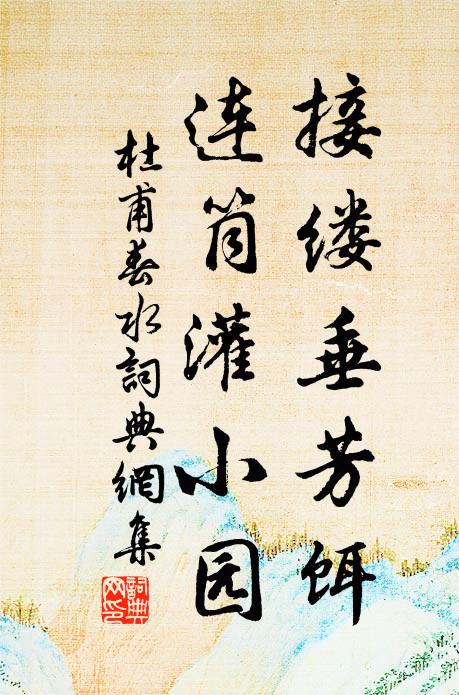 接缕垂芳饵
连筒灌小园
杜甫春水詞典網集
詞典網印